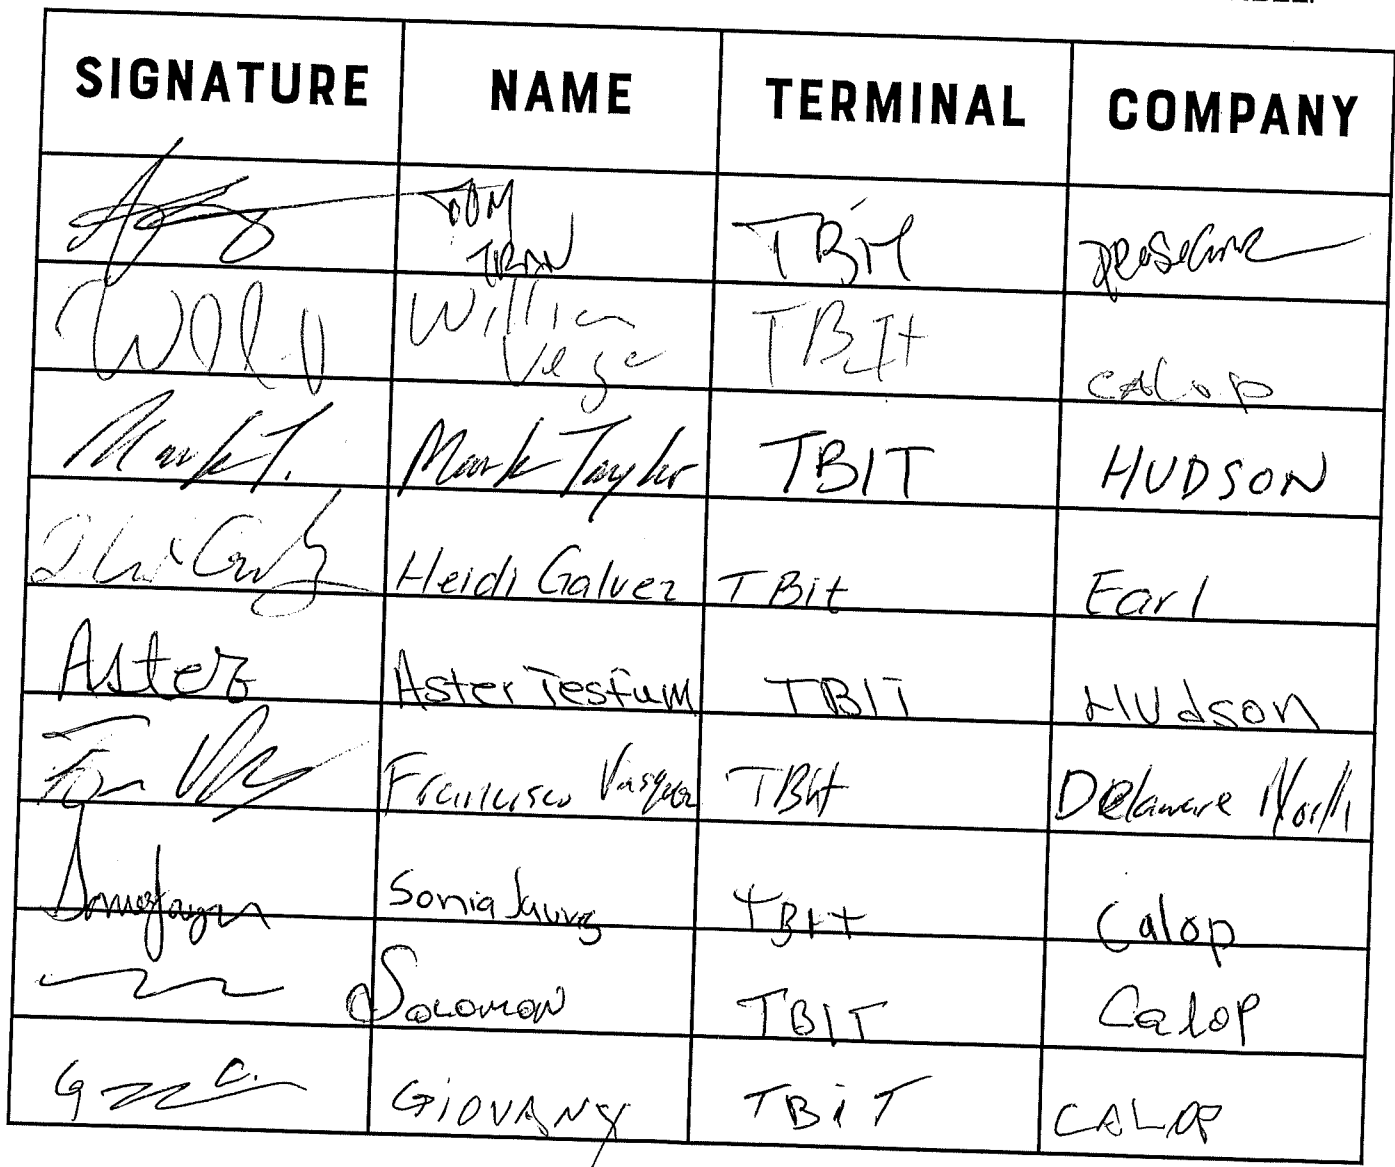 SIGNATURE NAME TERMINAL COMPANY
TOM
TRAN TBIT
William
Vega TBIt CALOP
Mark T. Mark Taylor TBIT HUDSON
Heidi Galvez TBit Earl
Aster Aster Tesfum TBIT HUdson
Francisco Vasquez TBit Delaware North
Sonia TBIT Calop
Solomon TBIT CalOP
G C. GiOVANY TBiT CALOP